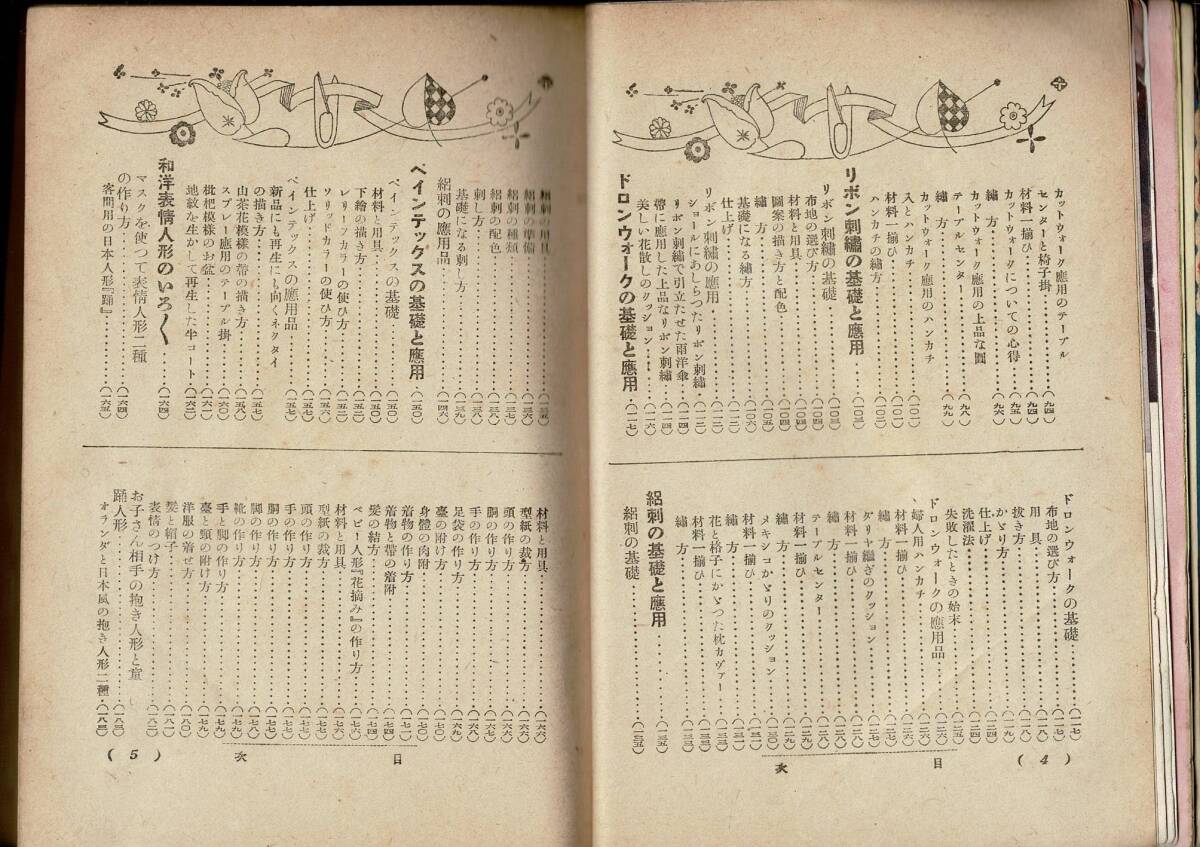 カットウォーク應用のテーブル
センターと椅子掛…(九四)
材料一揃ひ…(九四)
カットウォークについての心得…(九五)
繡方…(九六)
カットウォーク應用の上品な圓
テーブルセンター…(九八)
繡方…(九九)
カットウォーク應用のハンカチ
入とハンカチ…(一〇一)
材料一揃ひ…(一〇一)
ハンカチの繡方…(一〇二)
リボン刺繡の基礎と應用…(一〇三)
リボン刺繡の基礎…(一〇三)
布地の選び方…(一〇三)
材料と用具…(一〇四)
圖案の描き方と配色…(一〇四)
繡方…(一〇五)
基礎になる繡方…(一〇六)
仕上げ…(一一二)
リボン刺繡の應用…(一一二)
ショールにあしらつたリボン刺繡…(一一二)
リボン刺繡で引立たせた雨洋傘…(一一四)
帶に應用した上品なリボン刺繡…(一一四)
美しい花散しのクッション…(一一六)
ドロンウォークの基礎と應用…(一一七)
ドロンウォークの基礎…(一一七)
布地の選び方…(一一七)
用具…(一一八)
拔き方…(一一八)
かゞり方…(一一九)
仕上げ…(一二四)
洗濯法…(一二四)
失敗したときの始末…(一二五)
ドロンウォークの應用品…(一二六)
婦人用ハンカチ…(一二六)
材料一揃ひ…(一二六)
繡方…(一二七)
ダリヤ繼ぎのクッション…(一二七)
材料一揃ひ…(一二八)
繡方…(一二八)
テーブルセンター…(一二九)
材料一揃ひ…(一二九)
繡方…(一二九)
メキシコかゞりのクッション…(一三〇)
材料一揃ひ…(一三一)
繡方…(一三一)
花と格子にかゞつた枕カヴァー…(一三三)
材料一揃ひ…(一三三)
繡方…(一三三)
絽刺の基礎と應用…(一三五)
絽刺の基礎…(一三五)
目次
(4)
絽刺の用具…(一三五)
絽刺の準備…(一三六)
絽刺の種類…(一三七)
絽刺の配色…(一三八)
刺し方…(一三八)
基礎になる刺し方…(一三九)
絽刺の應用品…(一四六)
ペインテックスの基礎と應用…(一五〇)
ペインテックスの基礎…(一五〇)
材料と用具…(一五〇)
下繪の描き方…(一五二)
レリーフカラーの使ひ方…(一五二)
ソリッドカラーの使ひ方…(一五六)
仕上げ…(一五七)
ペインテックスの應用品…(一五七)
新品にも再生にも向くネクタイ
の描き方…(一五七)
山茶花模樣の帶の描き方…(一五八)
スプレー應用のテーブル掛…(一六〇)
枇杷模樣のお盆…(一六一)
地紋を生かして再生した半コート…(一六二)
和洋表情人形のいろ〱…(一六四)
マスクを使つて表情人形二種
の作り方…(一六四)
客間用の日本人形『踊』…(一六五)
材料と用具…(一六六)
型紙の裁方…(一六六)
頭の作り方…(一六六)
胴の作り方…(一六七)
手の作り方…(一六八)
足袋の作り方…(一六九)
臺の附け方…(一六九)
身體の肉附…(一七〇)
着物の作り方…(一七〇)
着物と帶の着附…(一七四)
髮の結方…(一七四)
ベビー人形『花摘み』の作り方…(一七六)
材料と用具…(一七六)
型紙の裁方…(一七七)
頭の作り方…(一七七)
手の作り方…(一七七)
胴の作り方…(一七八)
脚の作り方…(一七八)
靴の作り方…(一七九)
手と脚の作り方…(一七九)
臺と頸の附け方…(一七九)
洋服の着せ方…(一八〇)
髮と帽子…(一八一)
表情のつけ方…(一八二)
お子さん相手の抱き人形と童
踊人形…(一八三)
オランダと日本風の抱き人形二種…(一八三)
目次
(5)